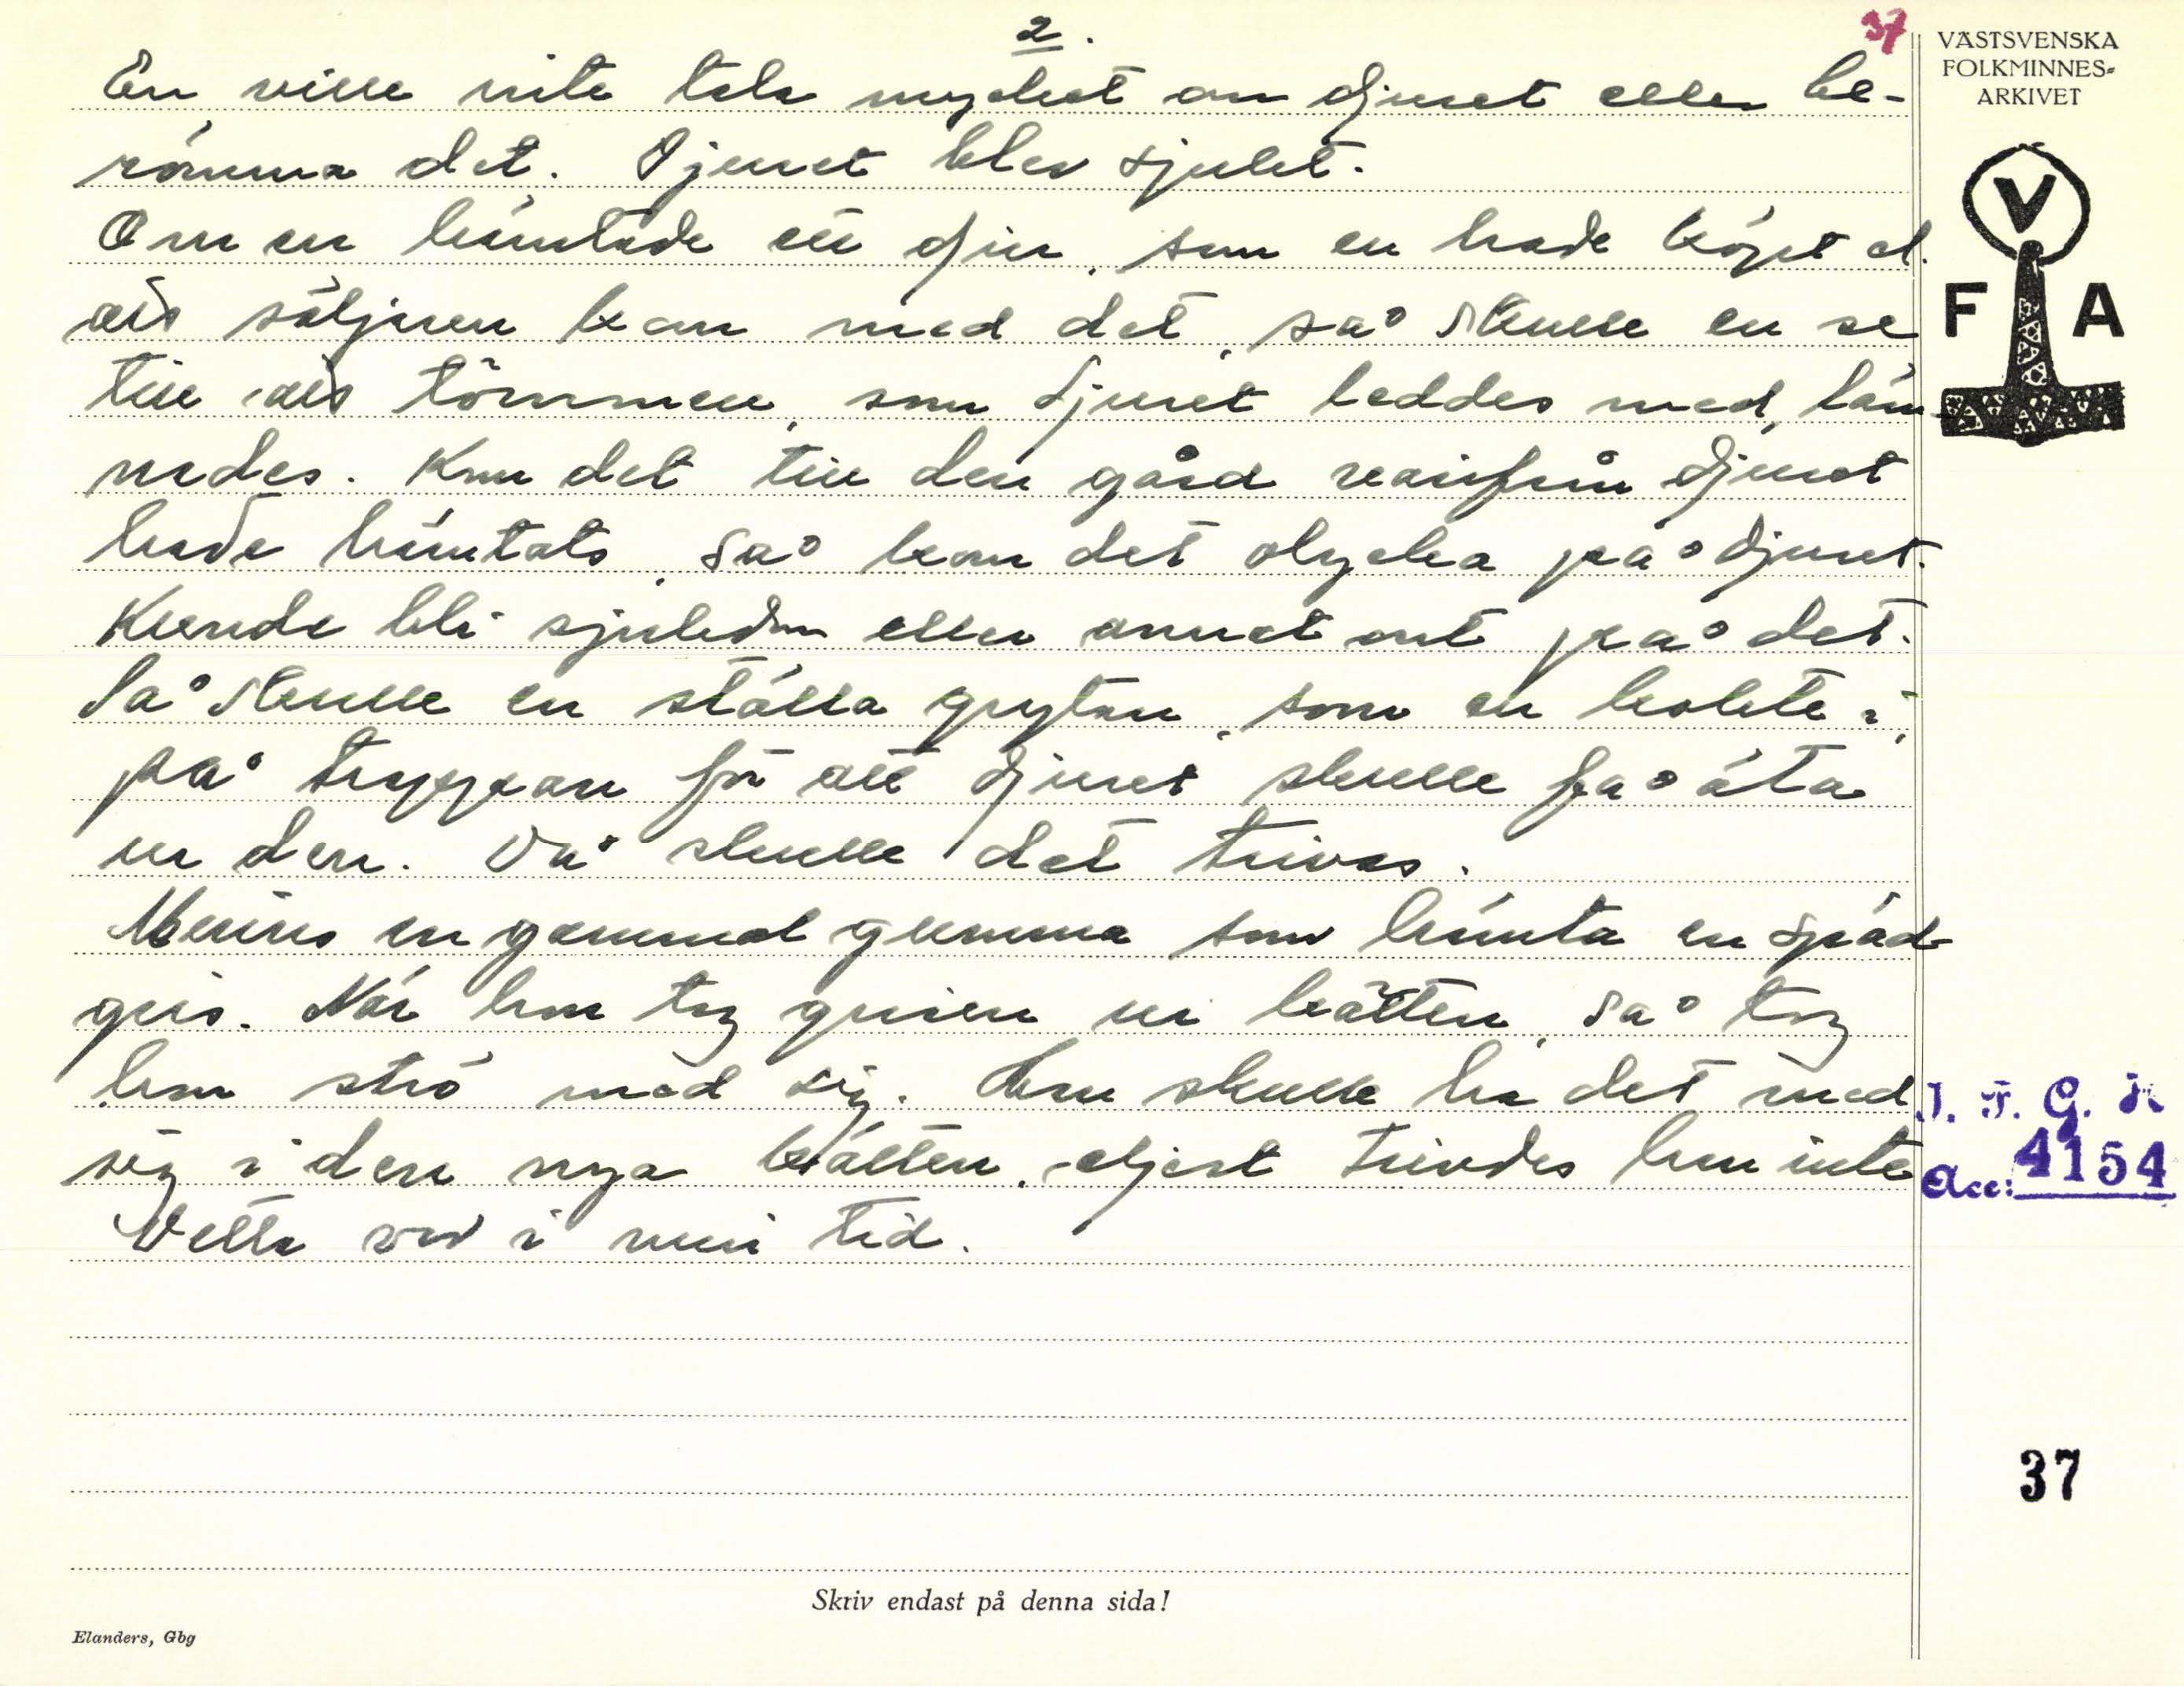 2.
37
En ville inte tala mycket om djuret eller be-
römma det. Djuret blev sjukt.
Om en hämtade ett djur, som en hade köpt el.
att säljaren kom med det, så skulle en se
till att tömmen, som djuret leddes med, läm-
nades. Kom det till den gård varifrån djuret
hade hämtats, så kom det olycka på djuret.
Kunde bli sjukdom eller annat ont på det.
Så skulle en ställa grytan, som en kokte i,
på trappan för att djuret skulle få äta
ur den. Då skulle det trivas.
Minns en gammal gumma som hämta en späd-
gris. När hon tog grisen ur kätten, så tog
hon strö med sig. Hon skulle ha det med
sig i den nya kätten, eljest trivdes hon inte
Detta var i min tid.
VÄSTSVENSKA
FOLKMINNES-
ARKIVET
V
F A
I. F. G. H
Acc: 4154
37
Skriv endast på denna sida!
Elanders, Gbg